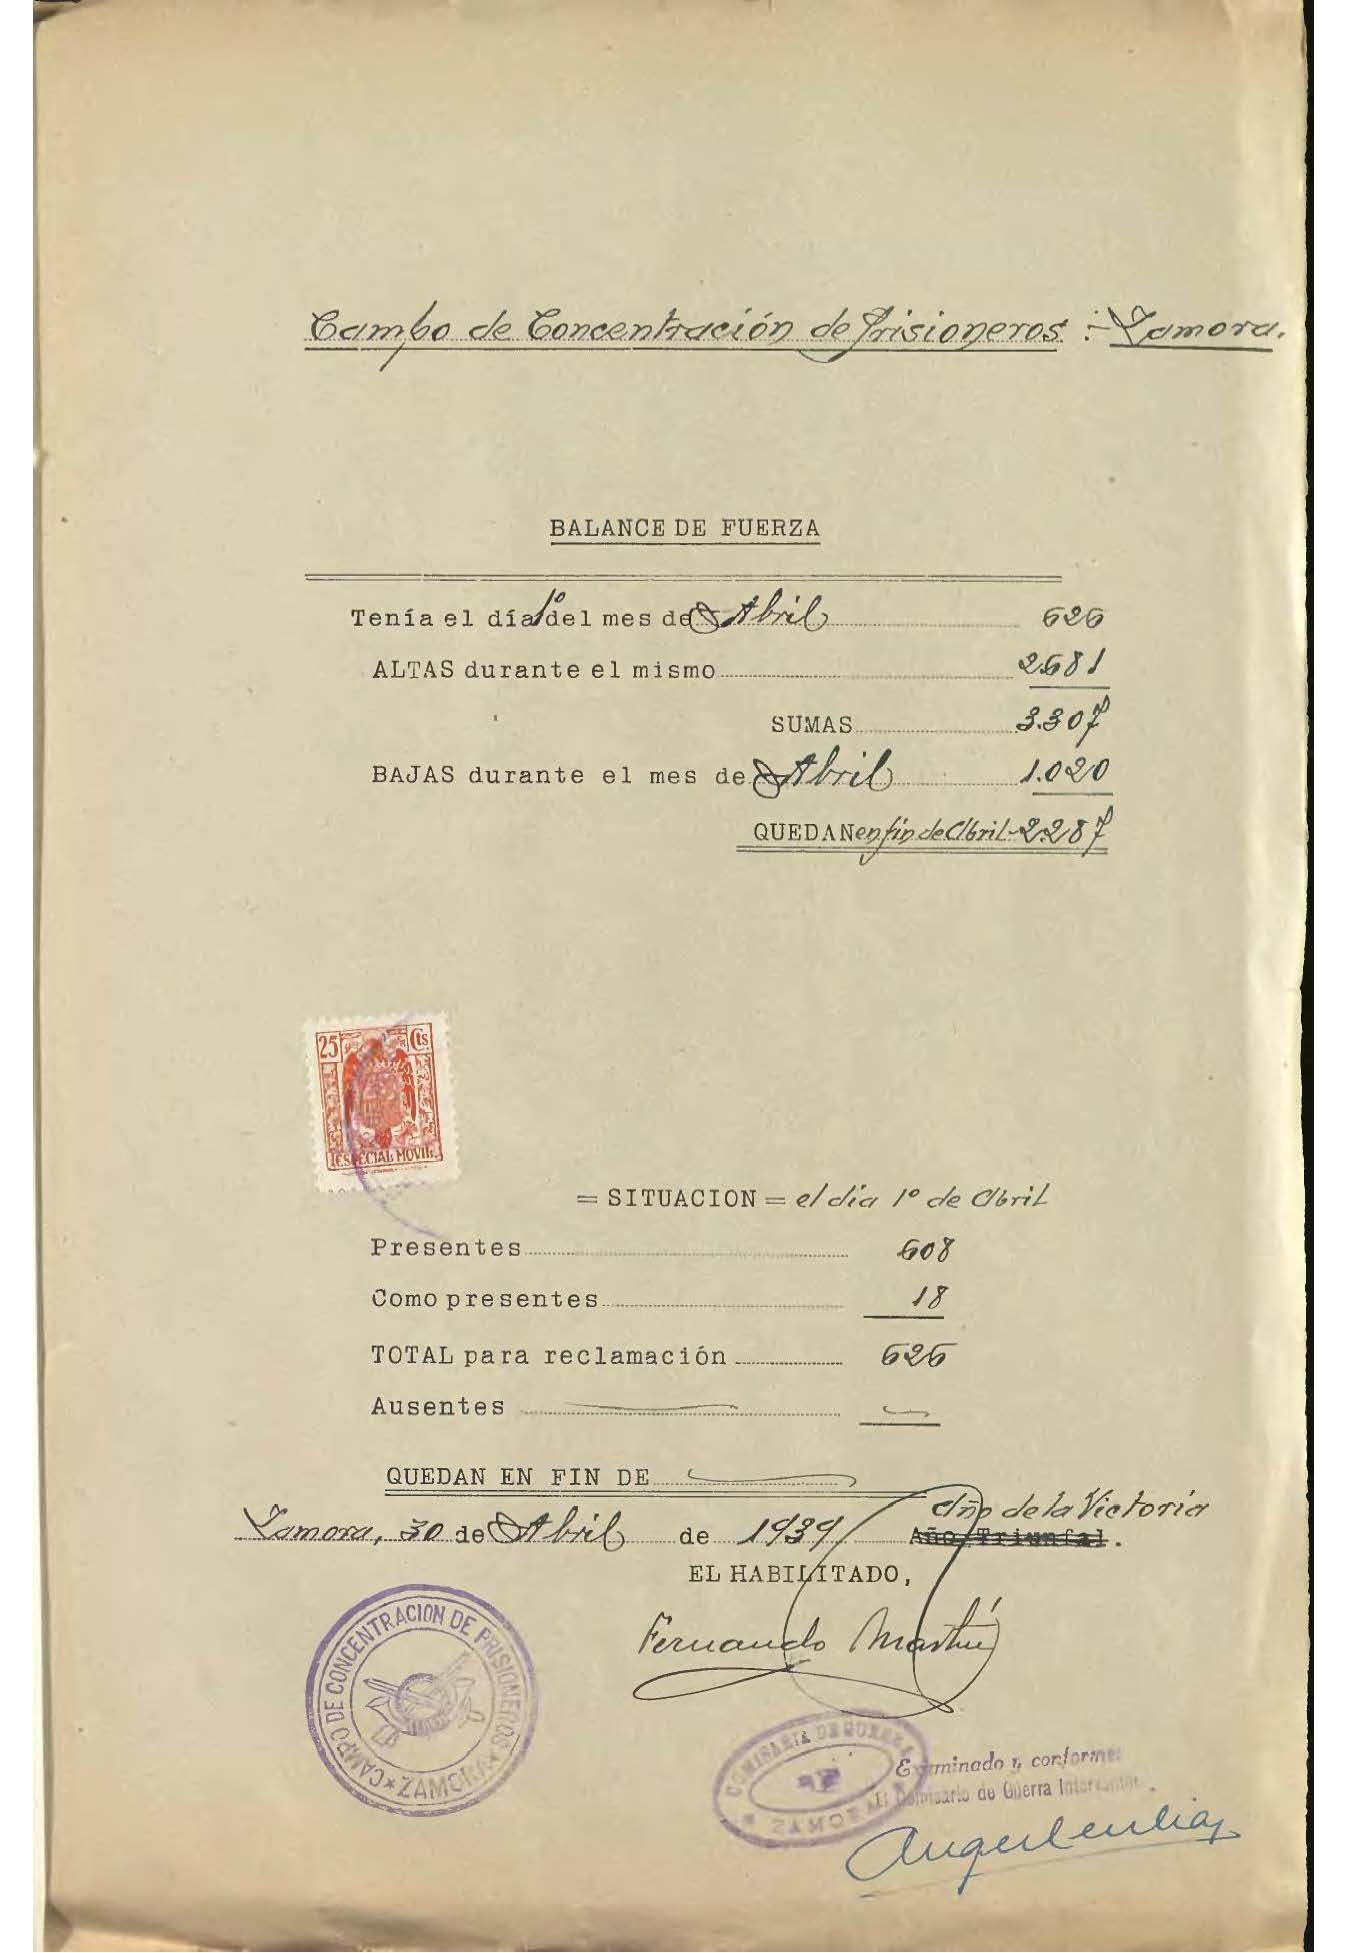 Campo de Concentración de Prisioneros :- Zamora.
BALANCE DE FUERZA
Tenía el día 1º del mes de Abril 626
ALTAS durante el mismo 2.681
SUMAS 3.307
BAJAS durante el mes de Abril 1.020
QUEDAN en fín de Abril- 2.287
25 Cts.
ESPECIAL MOVIL
= SITUACION = el día 1º de Abril
Presentes 608
Como presentes 18
TOTAL para reclamación 626
Ausentes
QUEDAN EN FIN DE
Año de la Victoria
Zamora, 30 de Abril de 1939 Año Triunfal.
EL HABILITADO,
Fernando Martín
CAMPO DE CONCENTRACION DE PRISIONEROS
* ZAMORA *
COMISARIA DE GUERRA
* ZAMORA *
Examinado y conforme:
El Comisario de Guerra Interventor